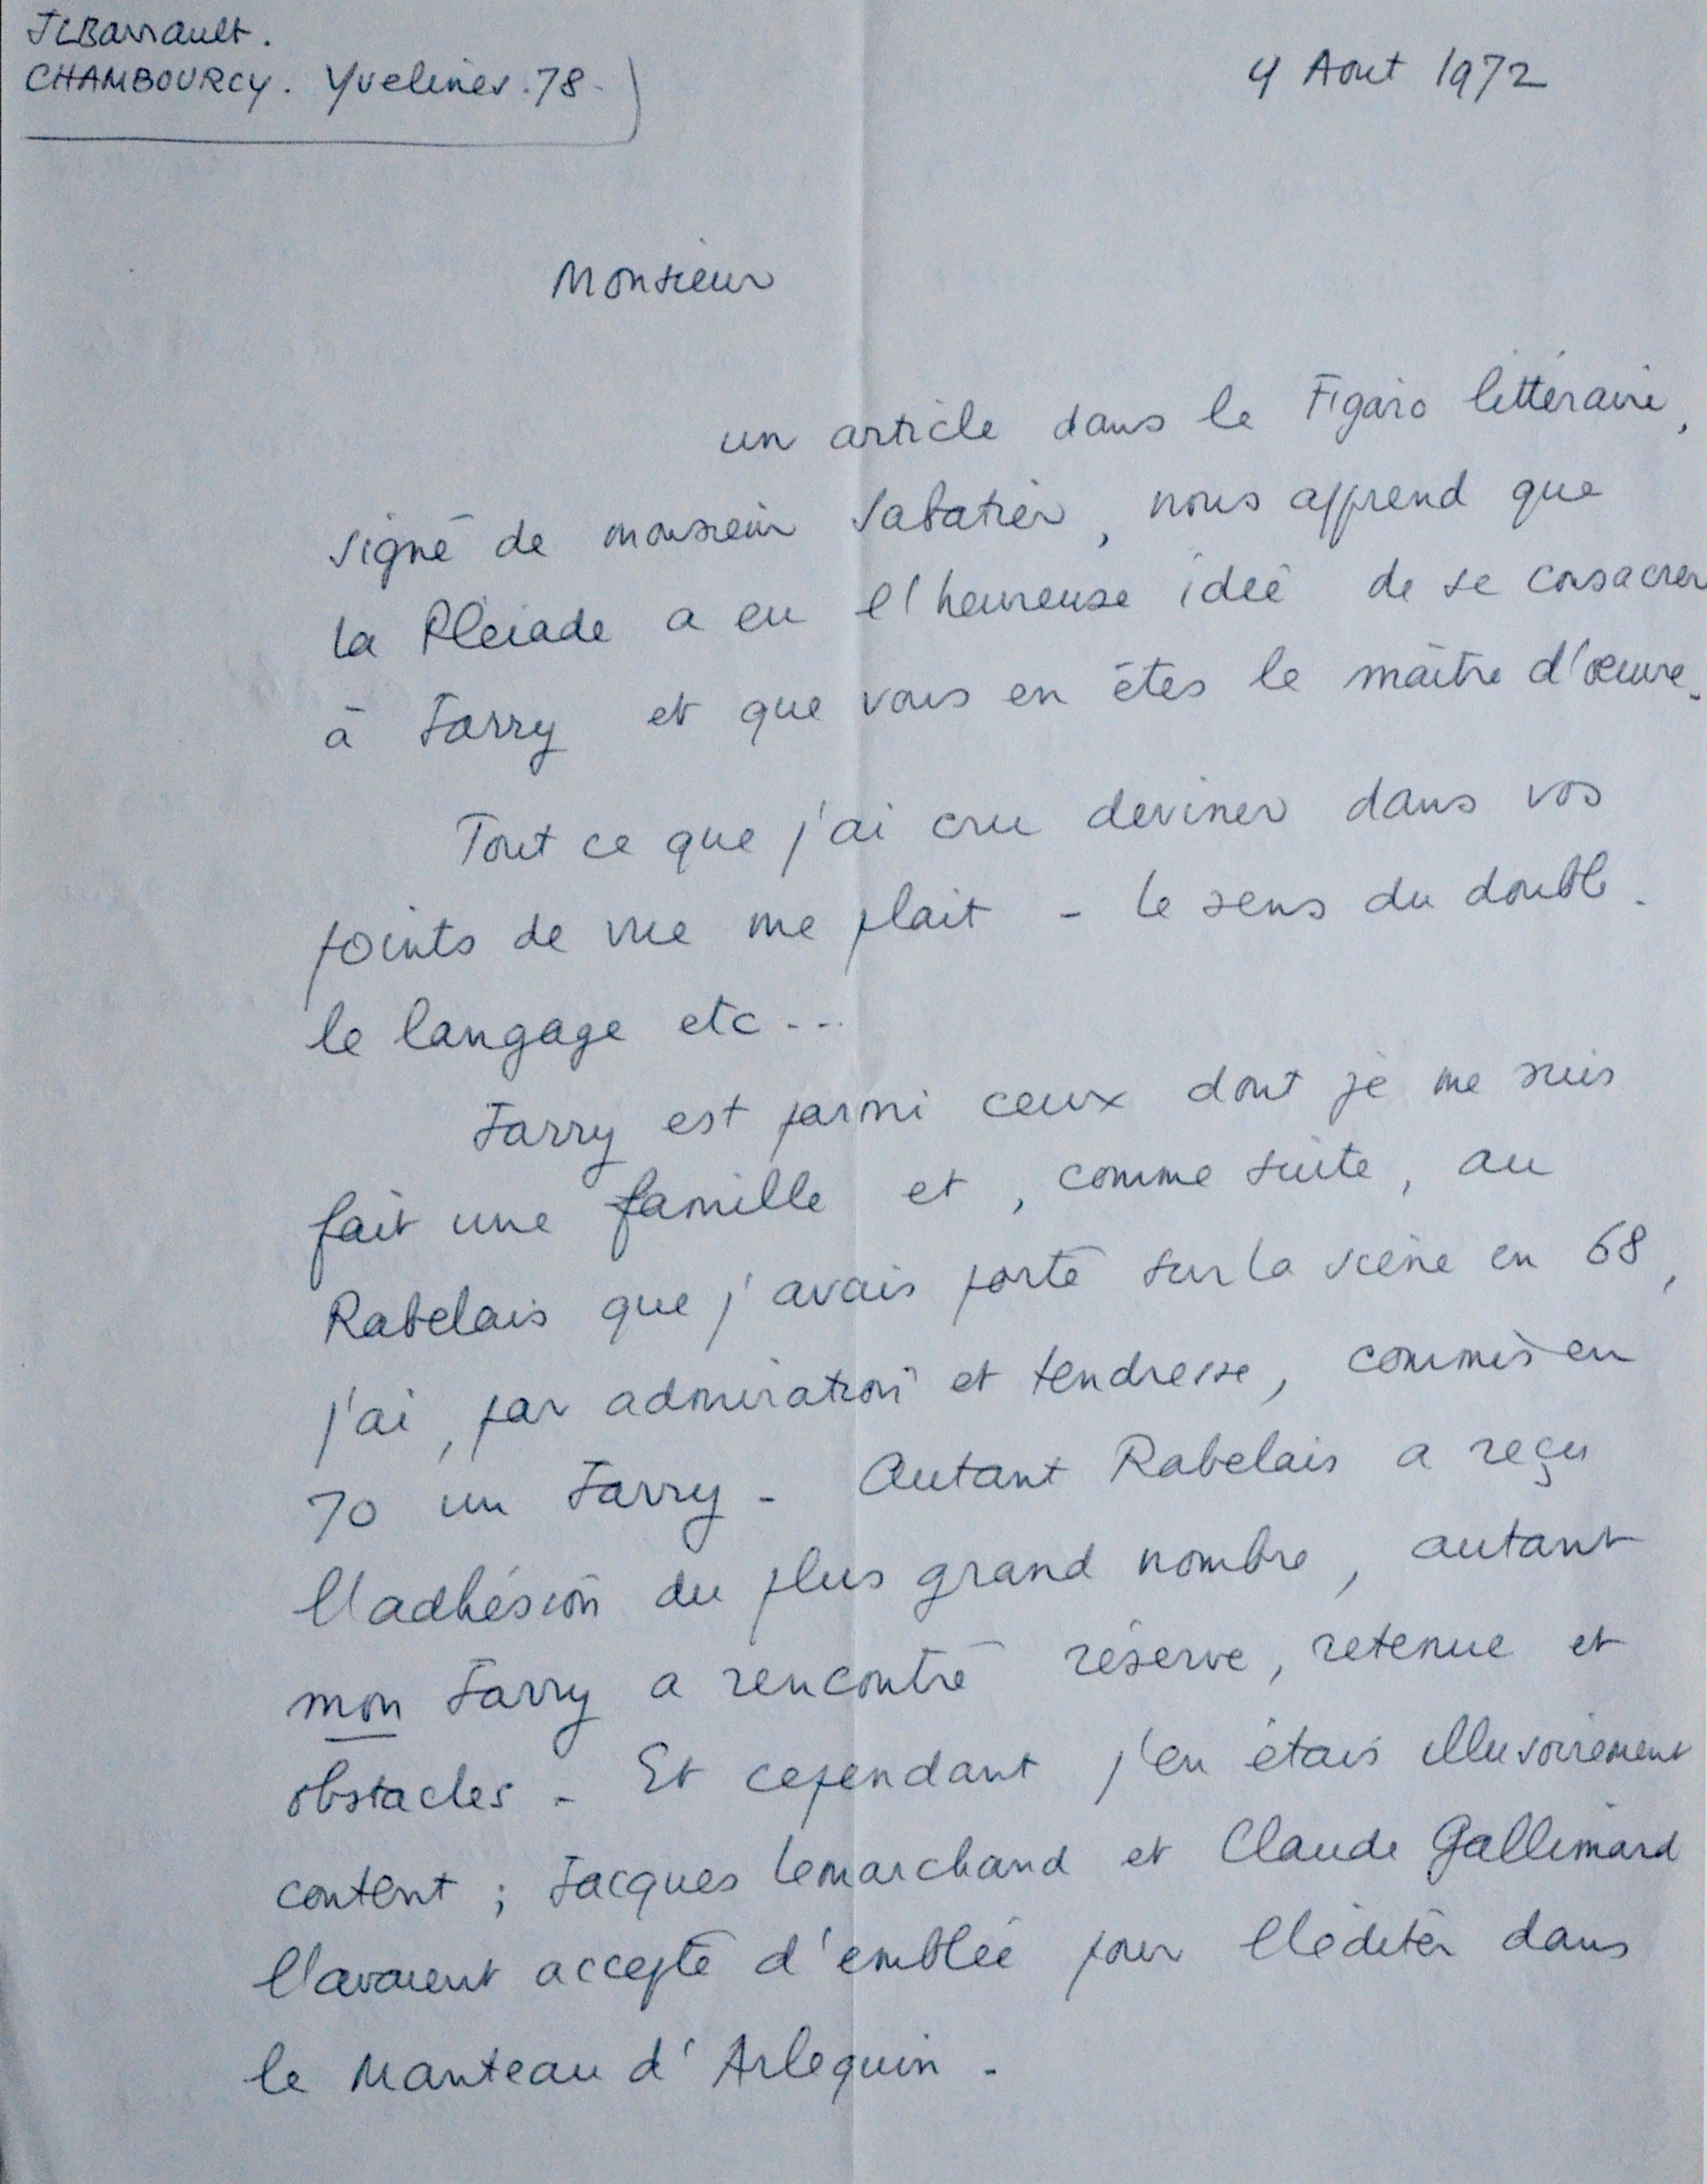 JLBarrault.
CHAMBOURCY. Yvelines.78-
4 Aout 1972
Monsieur
un article dans le Figaro littéraire,
signé de monsieur Sabatier, nous apprend que
la Pléiade a eu l'heureuse idée de se consacrer
à Jarry et que vous en êtes le maître d'œuvre.
Tout ce que j'ai cru deviner dans vos
points de vue me plait - le sens du double.
le langage etc...
Jarry est parmi ceux dont je me suis
fait une famille et, comme suite, au
Rabelais que j'avais porté sur la scène en 68,
j'ai, par admiration et tendresse, commis en
70 un Jarry - Autant Rabelais a reçu
l'adhésion du plus grand nombre, autant
mon Jarry a rencontré réserve, retenue et
obstacles - Et cependant j'en étais illusoirement
content ; Jacques Lemarchand et Claude Gallimard
l'avaient accepté d'emblée pour l'éditer dans
le Manteau d'Arlequin -